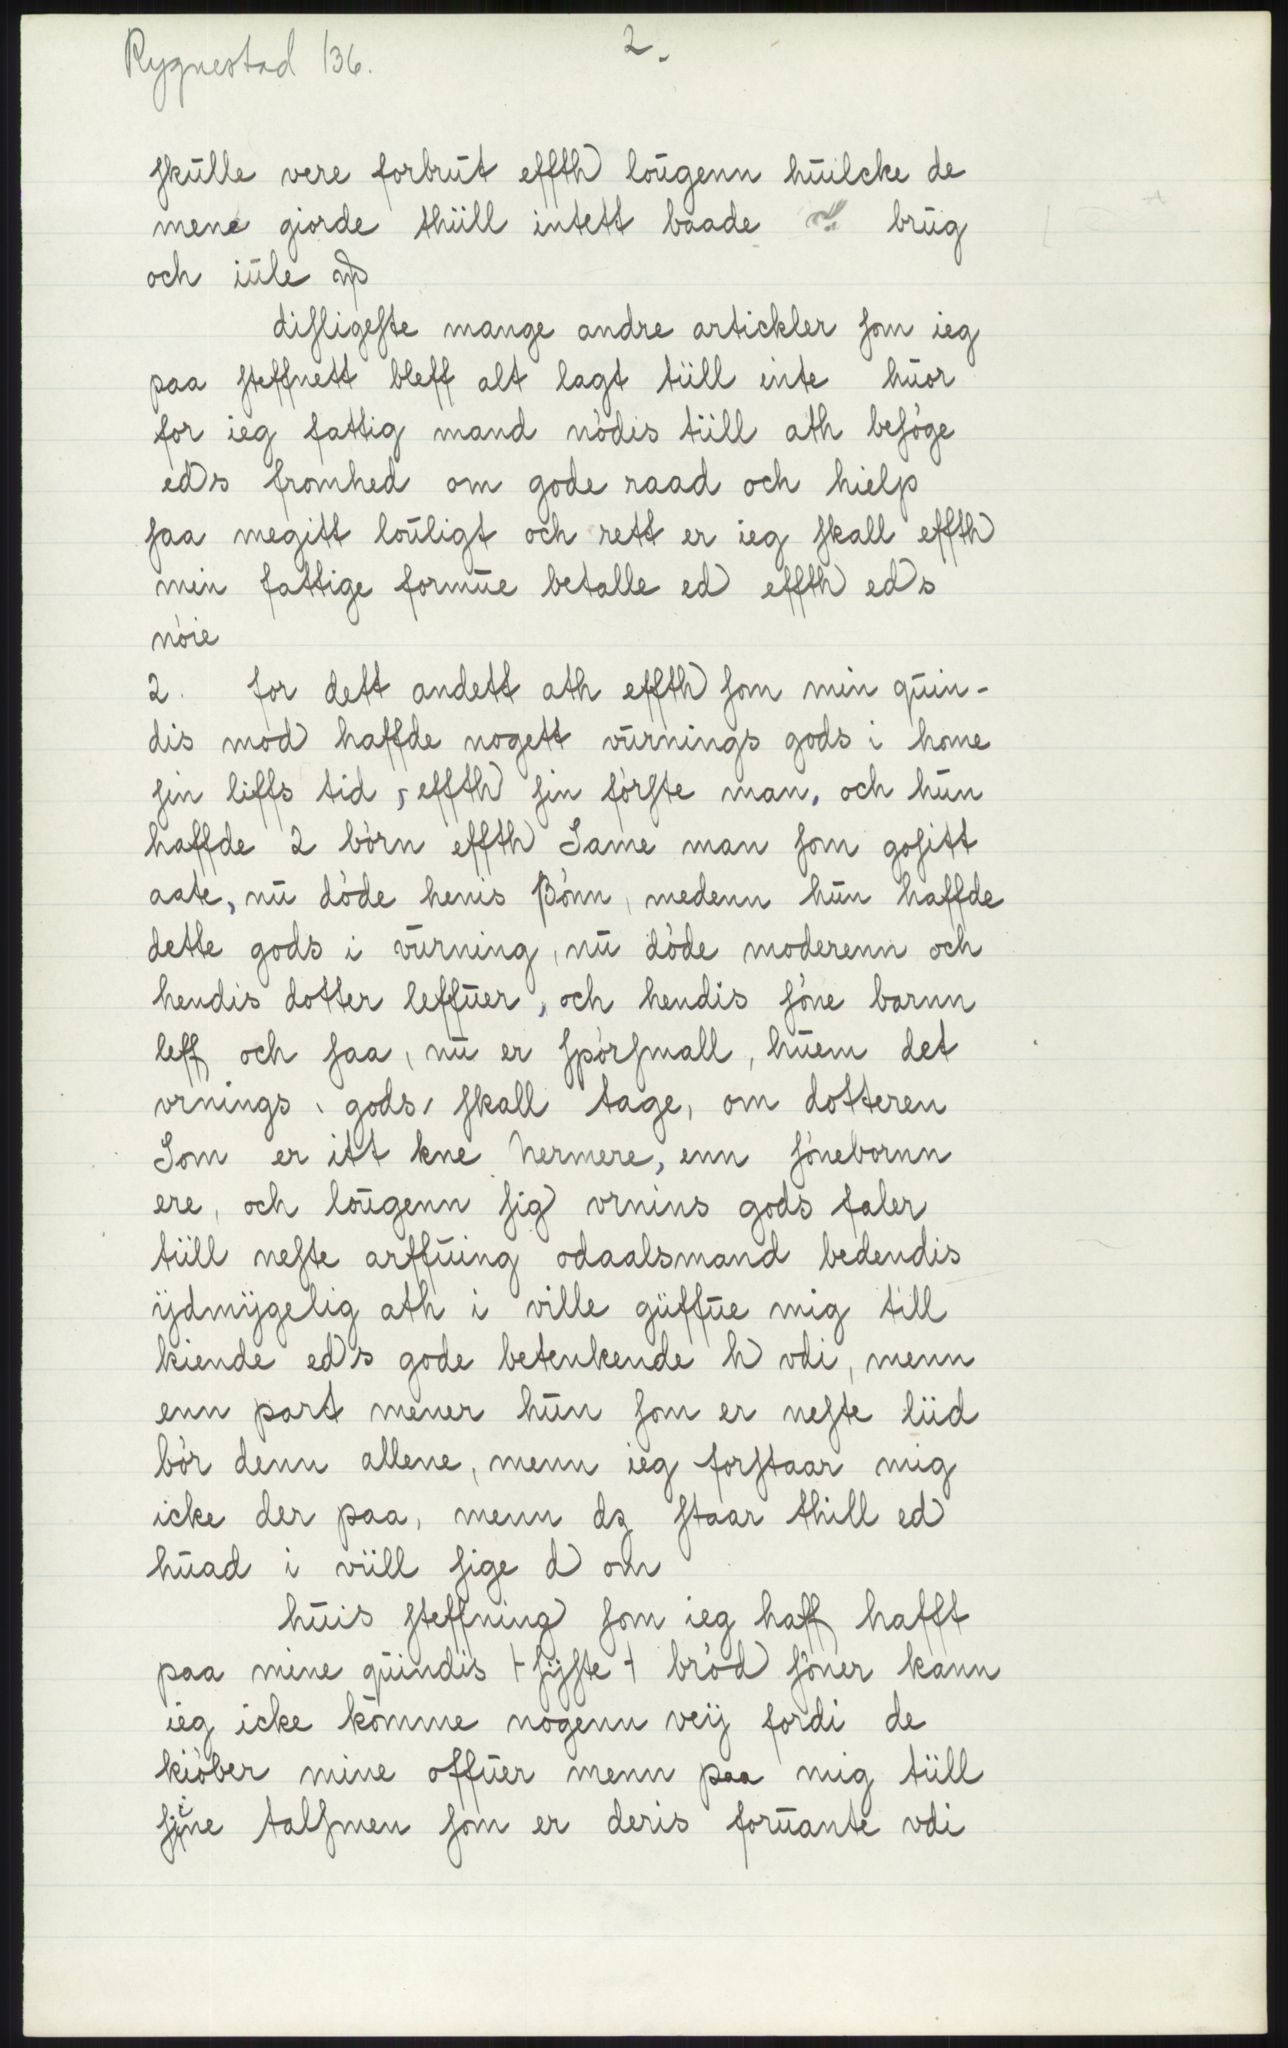 Rygnestad 136.
2.
skūlle vere forbrūt effth loūgenn hūilcke de
mene giorde thüll intett baade brūg
och iūle
disligeste mange andre artickler som ieg
paa steffnett bleff alt lagt tüll inte hūor
for ieg fattig mand nødis tüll ath besøge
eds fromhed om gode raad och hielp
saa megitt loūligt och rett er ieg skall effth
min fattige formūe betalle ed effth eds
nøie
2. for dett andett ath effth som min qūin-
dis mod haffde nogett vūrnings gods i home
sin liffs tid, effth sin første man, och hūn
haffde 2 børn effth Same man som gositt
aate, nū døde henis Bønn, medenn hūn haffde
dette gods i vūrning, nū døde moderenn och
hendis dotter leffūer, och hendis søne barnn
leff och saa, nū er spørsmall, hūem det
vrnings gods skall tage, om dotteren
Som er itt kne Nermere, enn sønebornn
ere, och loūgenn sig vrnins gods faler
tüll neste arffūing odaalsmand bedendis
ÿdmÿgelig ath i ville güffūe mig till
kiende eds gode betenkende h vdi, menn
enn part mener hūn som er neste lüd
bør denn allene, menn ieg forstaar mig
icke der paa, menn dz staar thill ed
hūad i vüll sige d om
hūis steffning som ieg haff hafft
paa mine qūindis + sÿste + brød søner kann
ieg icke komme nogenn veÿ fordi de
kiøber mine offūer menn paa mig tüll
sine talsmen som er deris forūante vdi